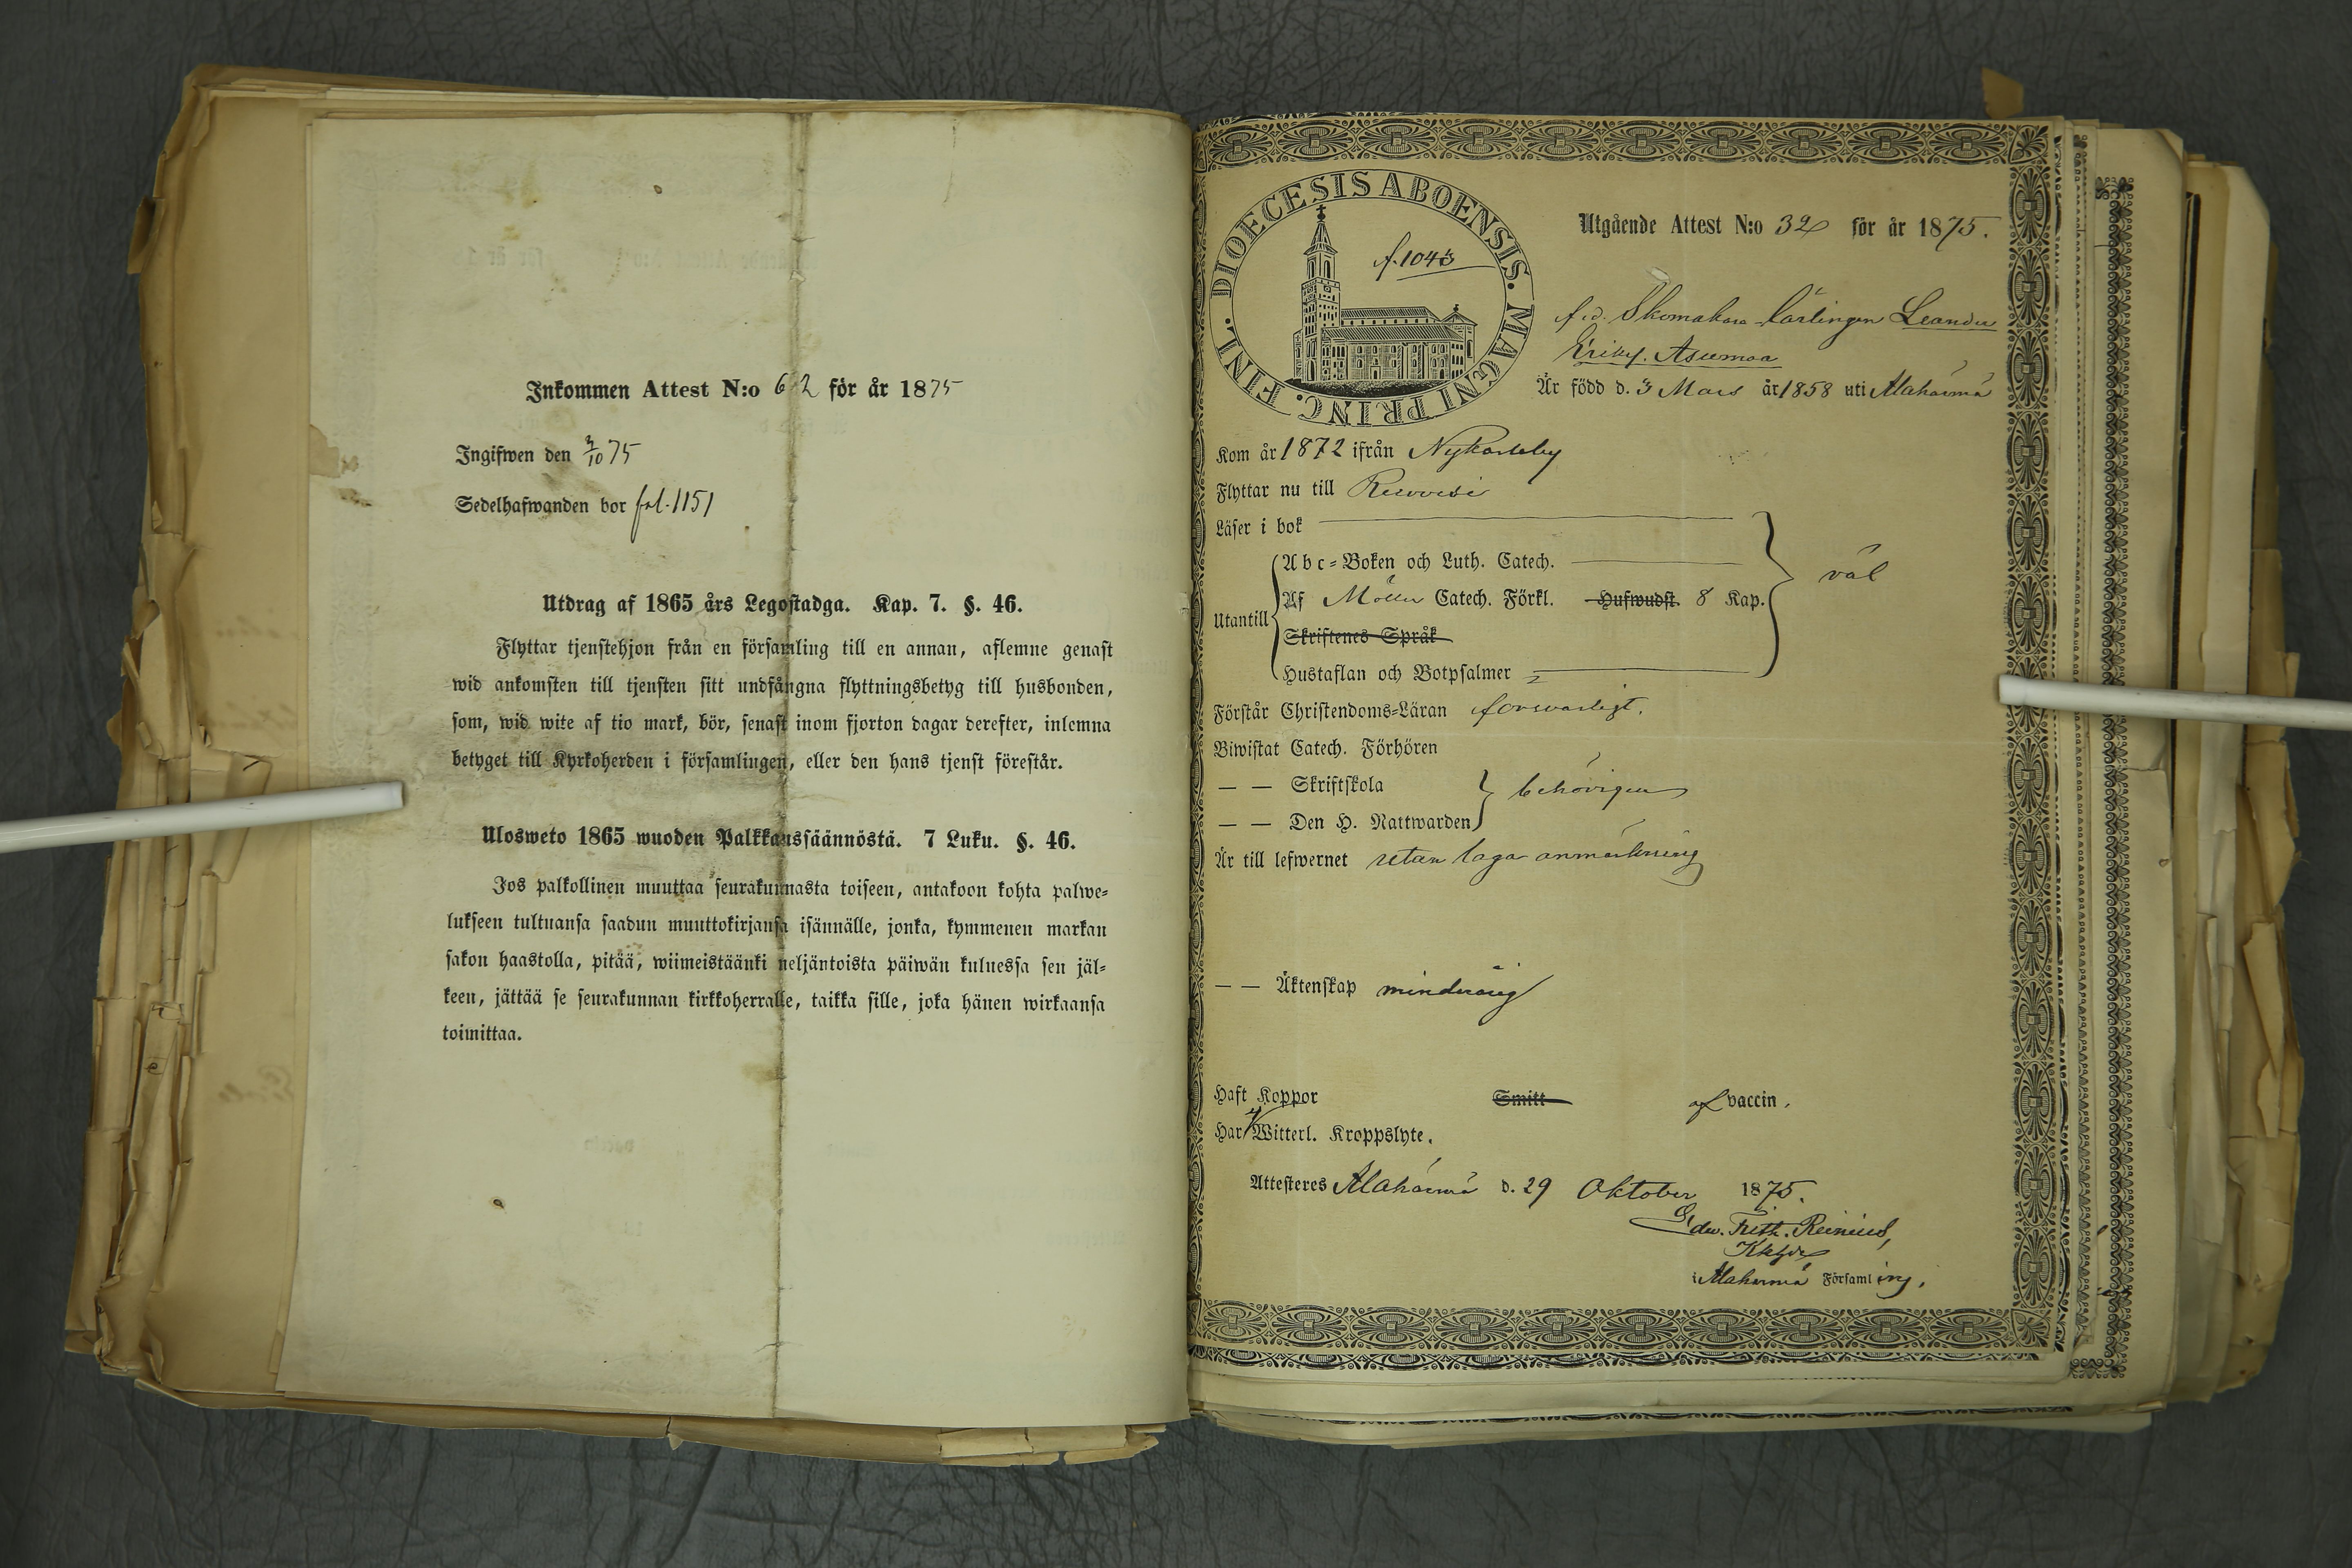 Inkommen Attest N:o 62 för år 1875
Ingifwen den 3/10 75
Sedelhafwanden bor fol. 1151
Utdrag af 1865 års Legostadga. Kap. 7. §. 46.
Flyttar tjenstehjon från en församling till en annan, aflemne genast
wid ankomsten till tjensten sitt undfångna flyttningsbetyg till husbonden,
som, wid wite af tio mark, bör, senast inom fjorton dagar derefter, inlemna
betyget till Kyrkoherden i församlingen, eller den hans tjenst förestår.
Ulosweto 1865 wuoden Palkkaussäännöstä. 7 Luku. §. 46.
Jos palkollinen muuttaa seurakunnasta toiseen, antakoon kohta palwe-
lukseen tultuansa saadun muuttokirjansa isännälle, jonka, kymmenen markan
sakon haastolla, pitää, wiimeistäänki neljäntoista päiwän kuluessa sen jäl-
keen, jättää se seurakunnan kirkkoherralle, taikka sille, joka hänen wirkaansa
toimittaa.
DIOECESIS ABOENSIS. MAGNI PRINC. FINL.
f. 1043
Utgående Attest N:o 32 för år 1875.
f.d. Skomakare Lärlingen Leander
Eriks. Asumaa
Är född d. 3 Mars år 1858 uti Alahärmä
Kom år 1872 ifrån Nykarleby
Flyttar nu till
Läser i bok
Utantill
Abc-Boken och Luth. Catech.
Af Möller Catech. Förkl. Hufwudst. 8 Kap.
Skriftenes Språk
Hustaflan och Botpsalmer
väl
Förstår Christendoms-Läran försvarligt.
Biwistat Catech. Förhören
— — Skriftskola
— — Den H. Nattwarden
behörigen
Är till lefwernet utan laga anmärkning
— — Äktenskap minderårig
Haft Koppor Smitt af vaccin.
Har ej Witterl. Kroppslyte.
Attesteres Alahärmä d. 29 Oktober 1875.
Edw. Frith. Reinius,
i Alahärmä Församling.